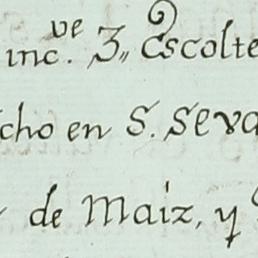 inc.ve 3,, Escolte
cho en S. Seva
de Maiz, y